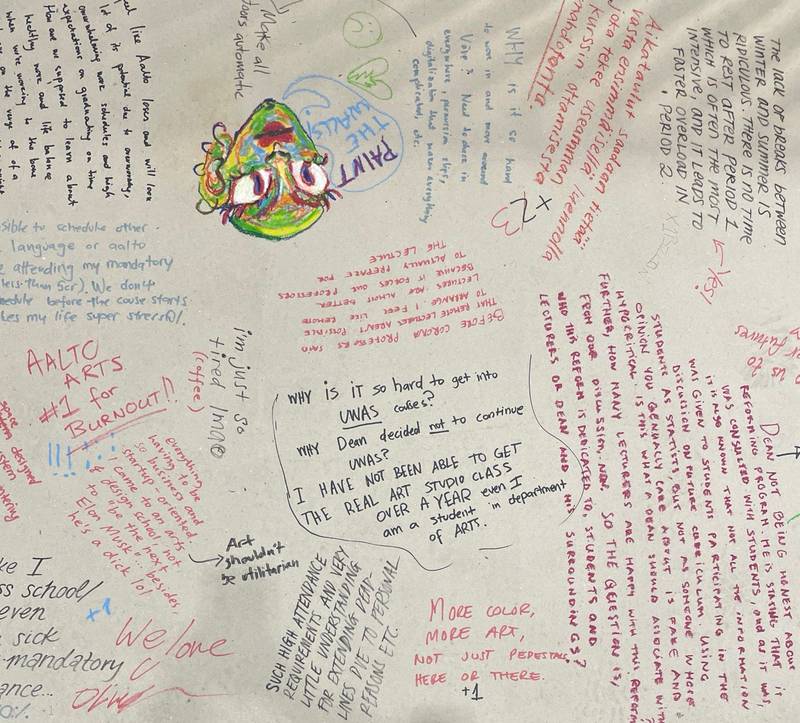 THE lack OF BREAKS BETWEEN
WINTER AND SUMMER IS
RIDICULOUS. THERE IS NO TIME
TO REST AFTER PERIOD 1
WHICH IS OFTEN THE MOST
INTENSIVE, AND IT LEADS TO
FASTER OVERLOAD IN
PERIOD 2.
← Yes!
Aikataulut saadaan tietää
vasta ensimmäisellä luennolla
Joka tekee useamman
kurssin ottamisesta
mahdotonta.
+23
WHY is it so hard
to move in and move around
Väre? Need to have in
everywhere, permission slips,
digitalization that makes everything
complicated, etc.
Make all
doors automatic
PAINT
THE
WALLS!
feel like Aalto loses and will lose
lot of its potential due to
overwhelming work schedules and high
expectations on graduating on time
How are we supposed to learn about
healthy work and life balance
when we're working to the bone
on the verge of a
sible to schedule other
language or aalto
attending my mandatory
(less than 5cr). We don't
hedule before the course starts
kes my life super stressful.
BEFORE CORONA PROFESSORS SAID
THAT REMOTE LECTURES AREN'T POSSIBLE
TO ARRANGE. I FEEL LIKE REMOTE
LECTURES ARE ALMOST BETTER
BECAUSE IT FORCES OUR PROFESSORS
TO ACTUALLY PREPARE FOR
THE LECTURE
AALTO
ARTS
#1 for
BURNOUT!!
!!!
im just so
tired man
(coffee)
WHY IS it so hard to get into
UWAS courses?
WHY Dean decided not to continue
UWAS?
I HAVE NOT BEEN ABLE TO GET
THE REAL ART STUDIO CLASS
OVER A YEAR even I
am a student in department
of ARTS.
DEAN NOT BEING HONEST ABOUT
REFORMING PROGRAM. HE IS STATING THAT IT
WAS CONSULTED WITH STUDENTS, and as it was,
it is also known that NOT ALL THE INFORMATION
WAS GIVEN TO STUDENTS PARTICIPATING IN THE
DISCUSSION ON FUTURE CURRICULUM. USING
STUDENTS AS STATISTS BUT NOT AS SOMEONE WHOSE
OPINION YOU GENUALLY CARE ABOUT IS FAKE AND
HYPOCRITICAL. IS THIS WHAT A DEAN SHOULD ASSOCIATE WITH
FURTHER, HOW MANY LECTURERS ARE HAPPY WITH THIS REFORM
FROM OUR DISCUSSION, NON. SO THE QUESTION IS,
WHO THIS REFORM IS DEDICATED TO, STUDENTS AND
LECTURERS OR DEAN AND HIS SURROUNDINGS?
us to
futures
everything to be
having to be
so business and
startup oriented.
I came to an arts
& design school, not
to be the next
Elon Musk... besides,
he's a dick lol
→ Art
shouldn't
be utilitarian
SUCH HIGH ATTENDANCE
REQUIREMENTS AND VERY
LITTLE UNDERSTANDING
FOR EXTENDING DEAD-
LINES DUE TO PERSONAL
REASONS ETC.
MORE COLOR,
MORE ART,
NOT JUST PEDESTALS
HERE OR THERE.
+1
ke I
ss school/
even
sick
mandatory
ance...
+1
We love